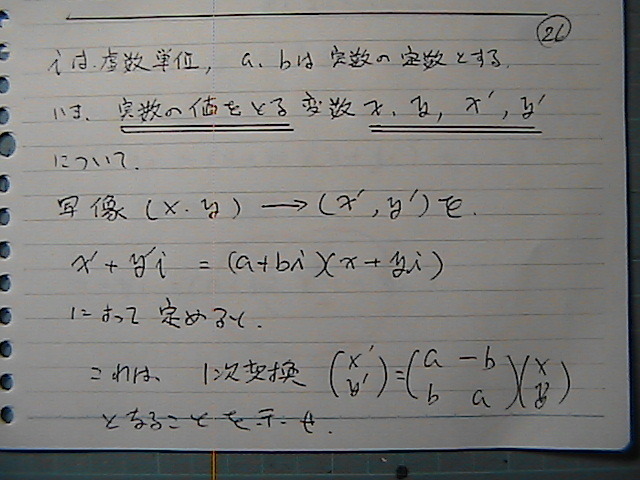 26
iは虚数単位, a、bは実数の定数とする.
いま、実数の値をとる変数 x, y, x′, y′
について.
写像 (x.y) → (x′, y′) を.
x′+y′i = (a+bi)(x+yi)
によって定めると.
これは、1次変換 (x′ y′) = (a -b b a)(x y)
となることを示せ.